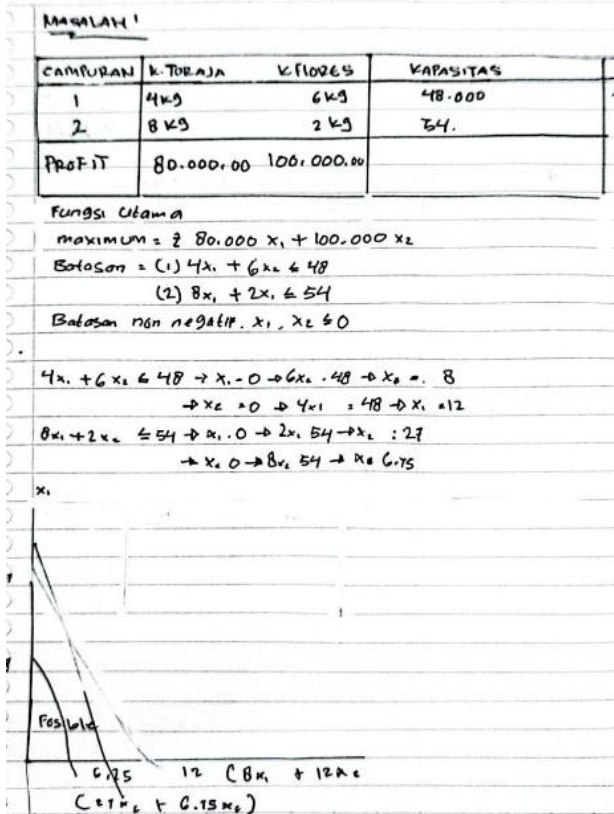 MASALAH 1
CAMPURAN K.TORAJA K.FLORES KAPASITAS
1 4kg 6kg 48.000
2 8kg 2kg 54.
PROFIT 80.000,00 100,000,00
Fungsi Utama
maximum = Z 80.000 x₁ + 100.000 x₂
Batasan = (1) 4x₁ + 6x₂ ≤ 48
(2) 8x₁ + 2x₁ ≤ 54
Batasan non negatif. x₁, x₂ ≤ 0
4x₁ + 6x₂ ≤ 48 → x₁ - 0 → 6x₂ . 48 → x₂ = 8
→ x₂ = 0 → 4x1 = 48 → x₁ = 12
8x₁ + 2x₂ ≤ 54 → x₁ . 0 → 2x₁ 54 → x₂ : 27
→ x₂ 0 → 8x₂ 54 → 6,75
x₁
Fosible
6,25 12 (8x₁ + 12x₂
(27x₂ + 6.75x₂)